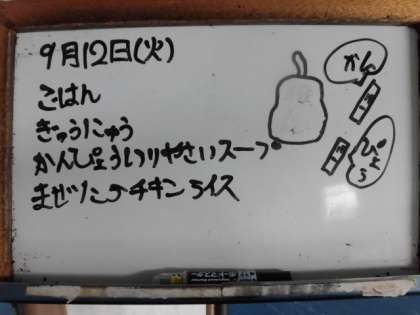 9月12日(火)
ごはん
ぎゅうにゅう
かんぴょういりやさいスープ
まぜりこみチキンライス
かん
ぴょう